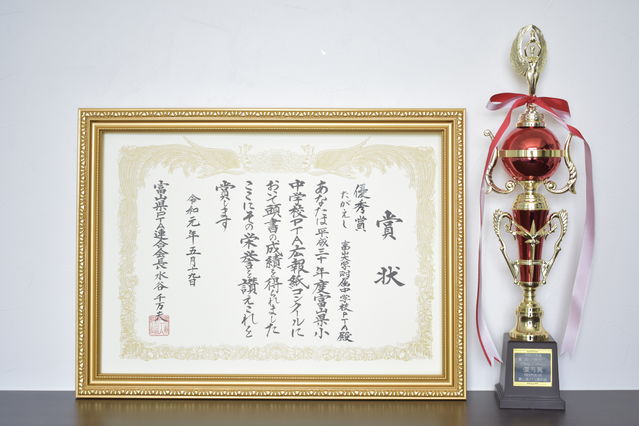 賞状
優秀賞
たがえし
富山大学附属中学校PTA殿
あなたは平成三十年度富山県小
中学校PTA広報紙コンクールに
おいて頭書の成績を得られました
ここにその栄誉を讃えこれを
賞します
令和元年五月二九日
富山県PTA連合会長水谷千万夫
優秀賞